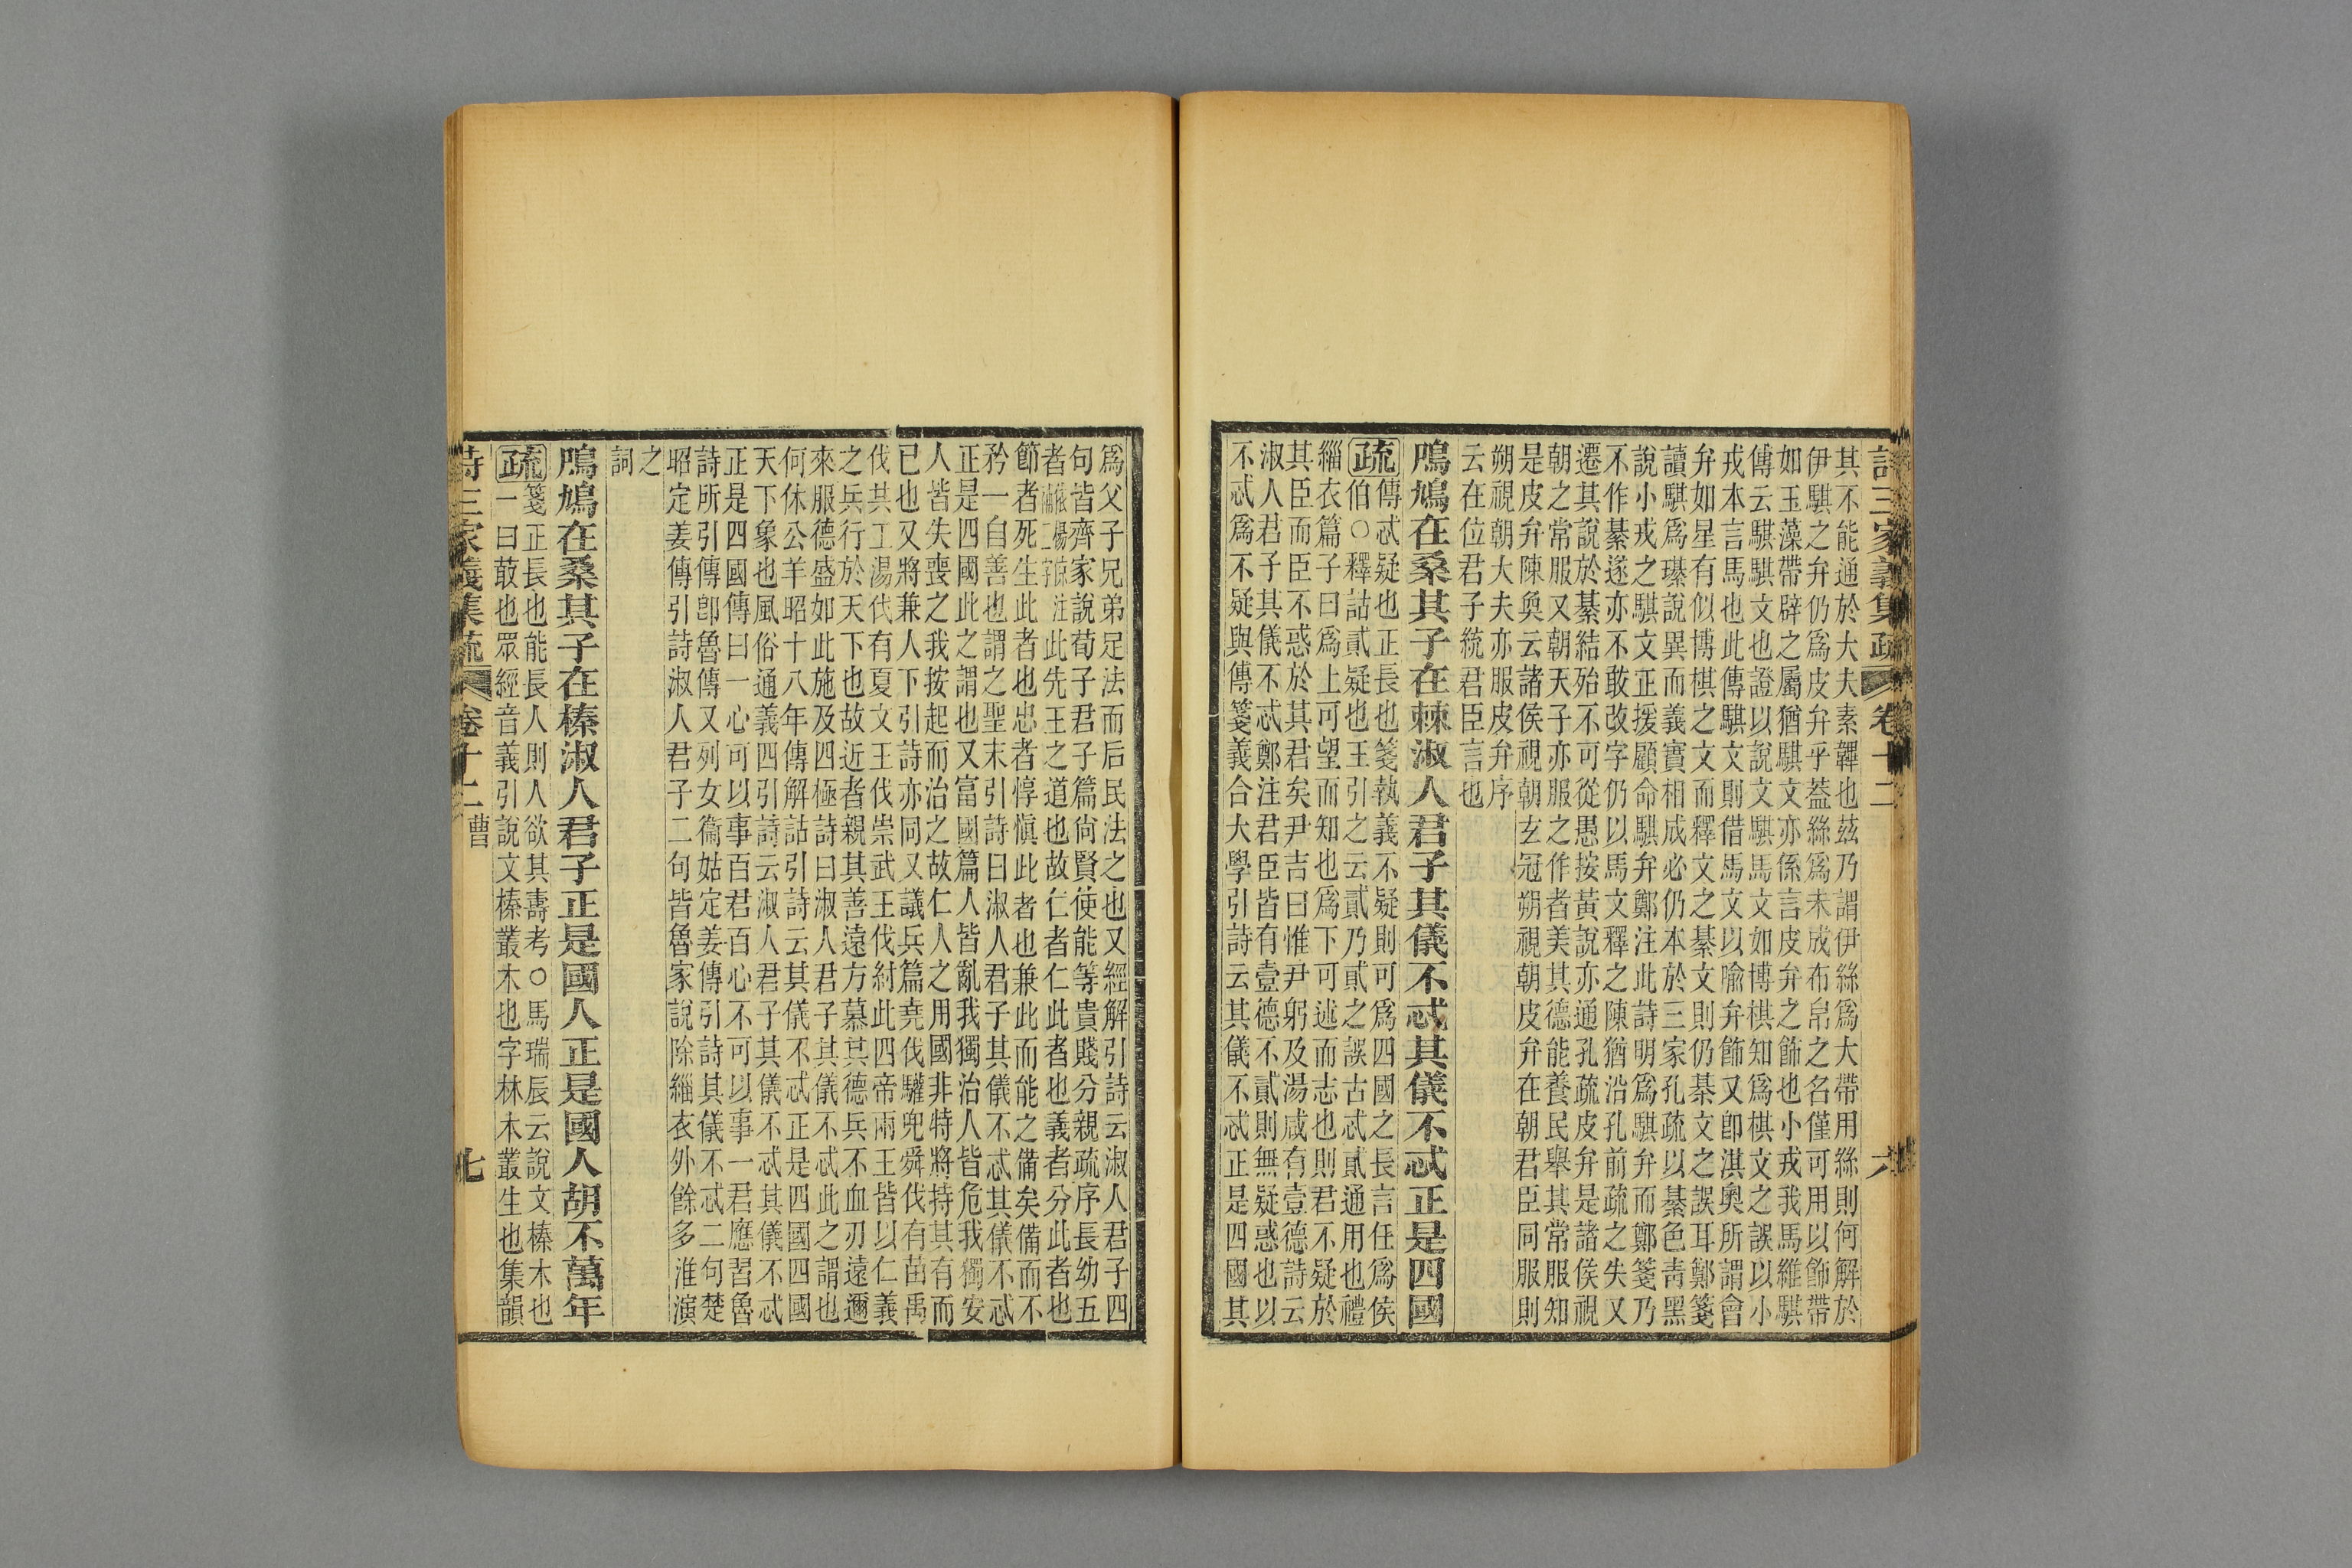 詩三家義集疏 卷十二 六
其不能通於大夫素韠也茲乃謂伊絲爲大帶用絲則何解於
伊騏之弁仍爲皮弁乎葢絲爲未成布帛之名僅可用以飾帶
如玉藻帶辟之屬猶騏文亦係言皮弁之飾也小戎我馬維騏
傳云騏騏文也證以說文騏馬文如博棋知爲棋文之誤以小
戎本言馬也此傳騏文則借馬文以喻弁飾又卽淇奧所謂會
弁如星有似博棋之文而釋文之綦文則仍綦文之誤耳鄭箋
讀騏爲璂說異而義實相成必仍本於三家孔疏以綦色靑黑
說小戎之騏文正援顧命騏弁鄭注此詩明爲騏弁而鄭箋乃
不作綦遂亦不敢改字仍以馬文釋之陳猶沿孔前疏之失又
遷其說於綦結殆不可從愚按黃說亦通孔疏皮弁是諸侯視
朝之常服又朝天子亦服之作者美其德能養民舉其常服知
是皮弁陳奐云諸侯視朝玄冠朔視朝皮弁在朝君臣同服則
朔視朝大夫亦服皮弁序
云在位君子統君臣言也
鳲鳩在桑其子在棘淑人君子其儀不忒其儀不忒正是四國
疏傳忒疑也正長也箋執義不疑則可爲四國之長言任爲侯
伯○釋詁貳疑也王引之云貳乃貣之誤古忒貣通用也禮
緇衣篇子曰爲上可望而知也爲下可述而志也則君不疑於
其臣而臣不惑於其君矣尹吉曰惟尹躬及湯咸有壹德詩云
淑人君子其儀不忒鄭注君臣皆有壹德不貳則無疑惑也以
不忒爲不疑與傳箋義合大學引詩云其儀不忒正是四國其
爲父子兄弟足法而后民法之也又經解引詩云淑人君子四
句皆齊家說荀子君子篇尙賢使能等貴賤分親疏序長幼五
者依楊倞注補二字此先王之道也故仁者仁此者也義者分此者也
節者死生此者也忠者惇愼此者也兼此而能之備矣備而不
矜一自善也謂之聖末引詩曰淑人君子其儀不忒其儀不忒
正是四國此之謂也又富國篇人皆亂我獨治人皆危我獨安
人皆失喪之我按起而治之故仁人之用國非特將持其有而
已也又將兼人下引詩亦同又議兵篇堯伐驩兜舜伐有苗禹
伐共工湯伐有夏文王伐崇武王伐紂此四帝兩王皆以仁義
之兵行於天下也故近者親其善遠方慕其德兵不血刃遠邇
來服德盛如此施及四極詩曰淑人君子其儀不忒此之謂也
何休公羊昭十八年傳解詁引詩云其儀不忒正是四國四國
天下象也風俗通義四引詩云淑人君子其儀不忒其儀不忒
正是四國傳曰一心可以事百君百心不可以事一君應習魯
詩所引傳卽魯傳又列女衞姑定姜傳引詩其儀不忒二句楚
昭定姜傳引詩淑人君子二句皆魯家說除緇衣外餘多淮演
之
詞
鳲鳩在桑其子在榛淑人君子正是國人正是國人胡不萬年
疏箋正長也能長人則人欲其壽考○馬瑞辰云說文榛木也
一曰菆也眾經音義引說文榛叢木也字林木叢生也集韻
詩三家義集疏 卷十二 曹 七